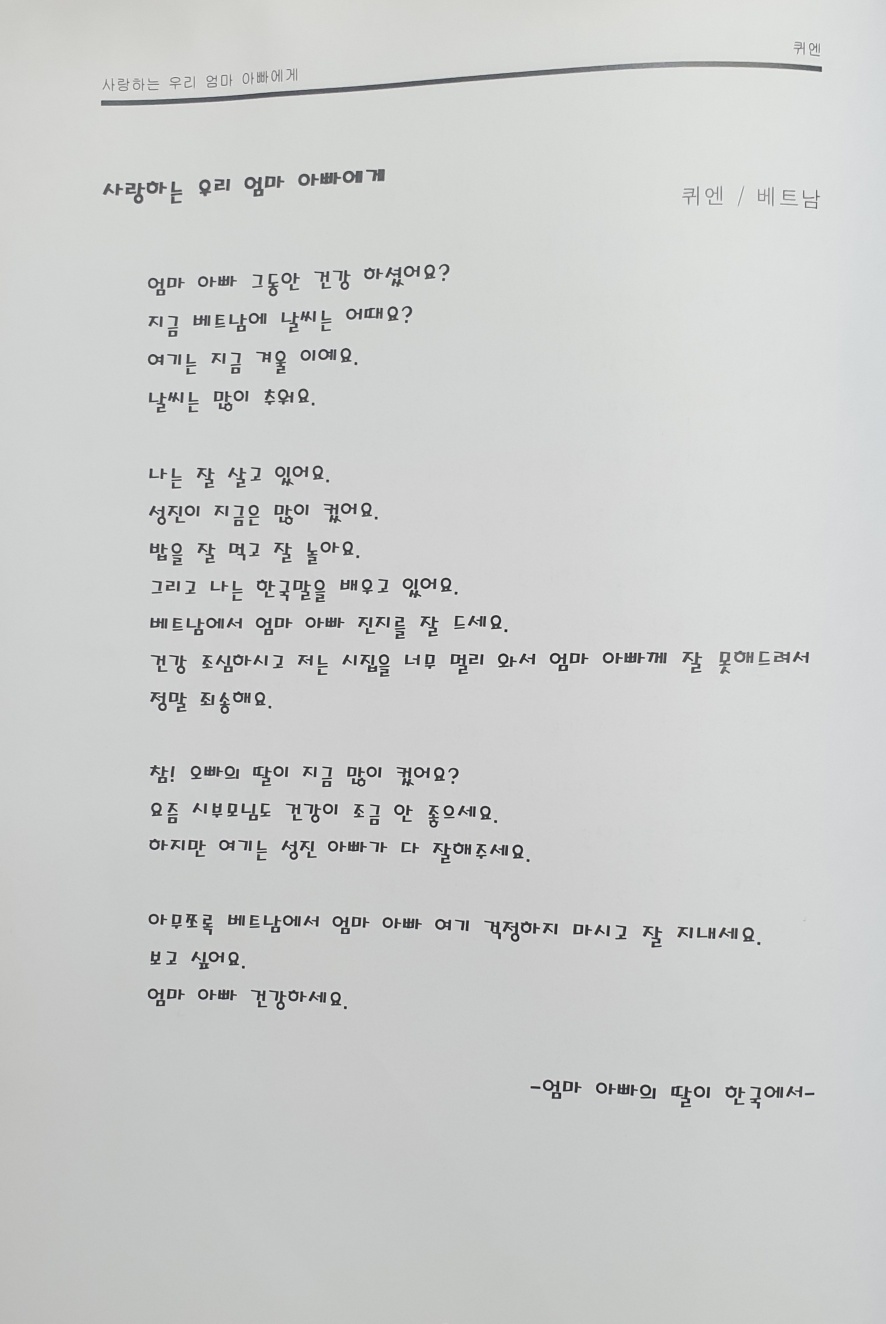 퀴엔
사랑하는 우리 엄마 아빠에게
사랑하는 우리 엄마 아빠에게
퀴엔 / 베트남
엄마 아빠 그동안 건강 하셨어요?
지금 베트남에 날씨는 어때요?
여기는 지금 겨울 이예요.
날씨는 많이 추워요.
나는 잘 살고 있어요.
성진이 지금은 많이 컸어요.
밥을 잘 먹고 잘 놀아요.
그리고 나는 한국말을 배우고 있어요.
베트남에서 엄마 아빠 진지를 잘 드세요.
건강 조심하시고 저는 시집을 너무 멀리 와서 엄마 아빠께 잘 못해드려서
정말 죄송해요.
참! 오빠의 딸이 지금 많이 컸어요?
요즘 시부모님도 건강이 조금 안 좋으세요.
하지만 여기는 성진 아빠가 다 잘해주세요.
아무쪼록 베트남에서 엄마 아빠 여기 걱정하지 마시고 잘 지내세요.
보고 싶어요.
엄마 아빠 건강하세요.
-엄마 아빠의 딸이 한국에서-